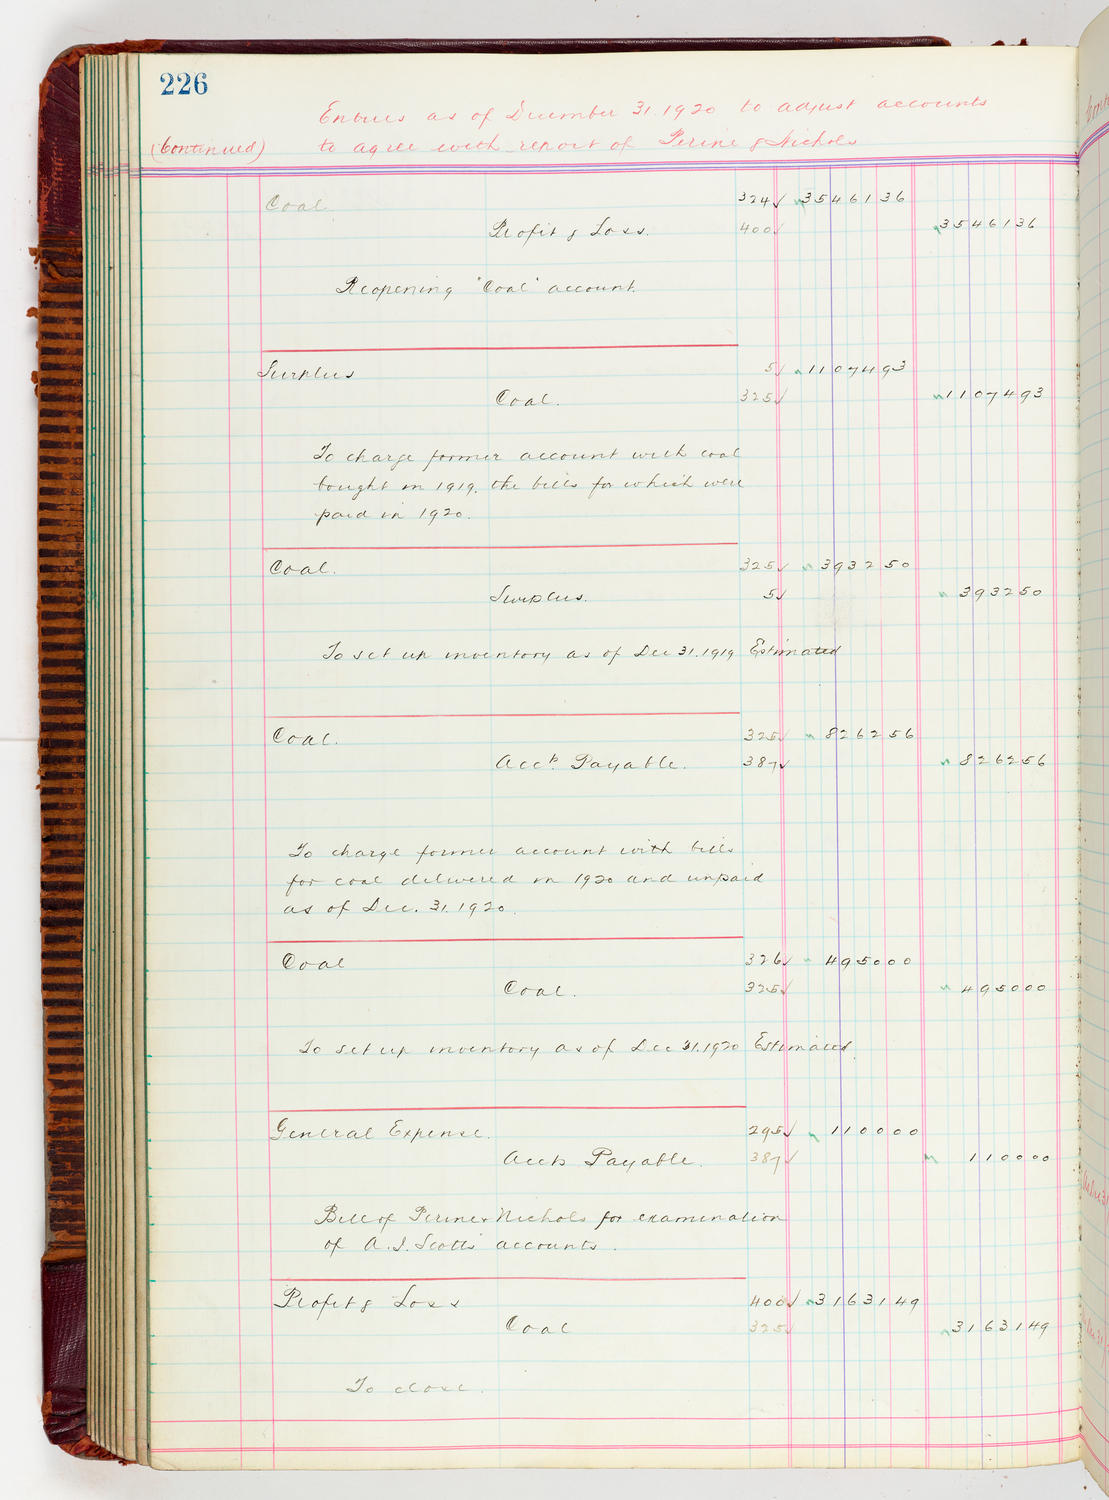 226
Entries as of December 31. 1920 to adjust accounts
(Continued) to agree with report of Perine & Nichols
Coal 324✓ 3546136
Profit & Loss. 400✓ 3546136
Reopening "Coal" account.
Surplus 5✓ 1107493
Coal. 325✓ 1107493
To charge former account with coal
bought in 1919. the bills for which were
paid in 1920.
Coal. 325✓ 393250
Surplus. 5✓ 393250
To set up inventory as of Dec 31. 1919 Estimated
Coal. 325✓ 826256
Accts. Payable. 387✓ 826256
To charge former account with bills
for coal delivered in 1920 and unpaid
as of Dec. 31. 1920.
Coal 326✓ 495000
Coal. 325✓ 495000
To set up inventory as of Dec 31. 1920 Estimated
General Expense. 295✓ 110000
Accts Payable. 387✓ 110000
Bill of Perine & Nichols for examination
of A. I. Scotts accounts.
Profit & Loss 400✓ 3163149
Coal 325✓ 3163149
To close.